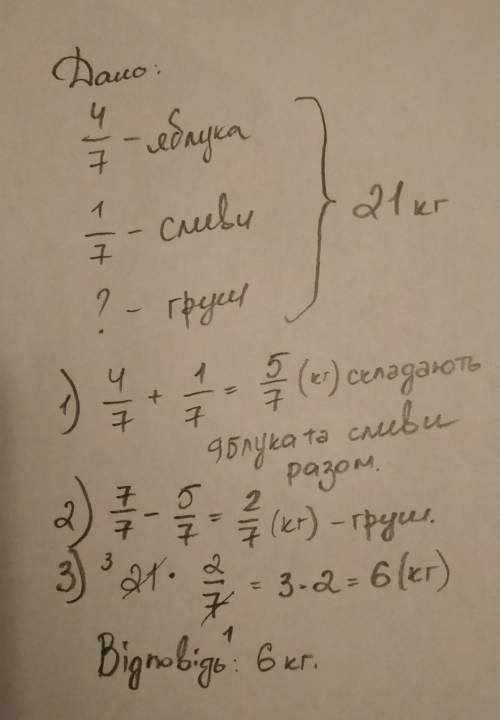 Дано:
4/7 – яблука
1/7 – сливи
? – груш
} 21 кг
1) 4/7 + 1/7 = 5/7 (кг) складають
яблука та сливи
разом.
2) 7/7 – 5/7 = 2/7 (кг) – груш.
3) ³ 21 · 2/7 = 3·2 = 6 (кг)
1
Відповідь: 6 кг.